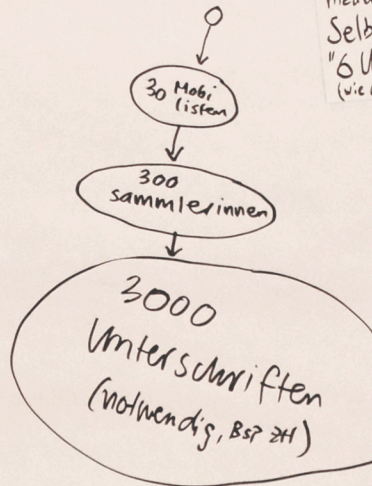 Selb
"6
30 Mobi
listen
300
sammlerinnen
3000
Unterschriften
(notwendig, Bsp ZH)